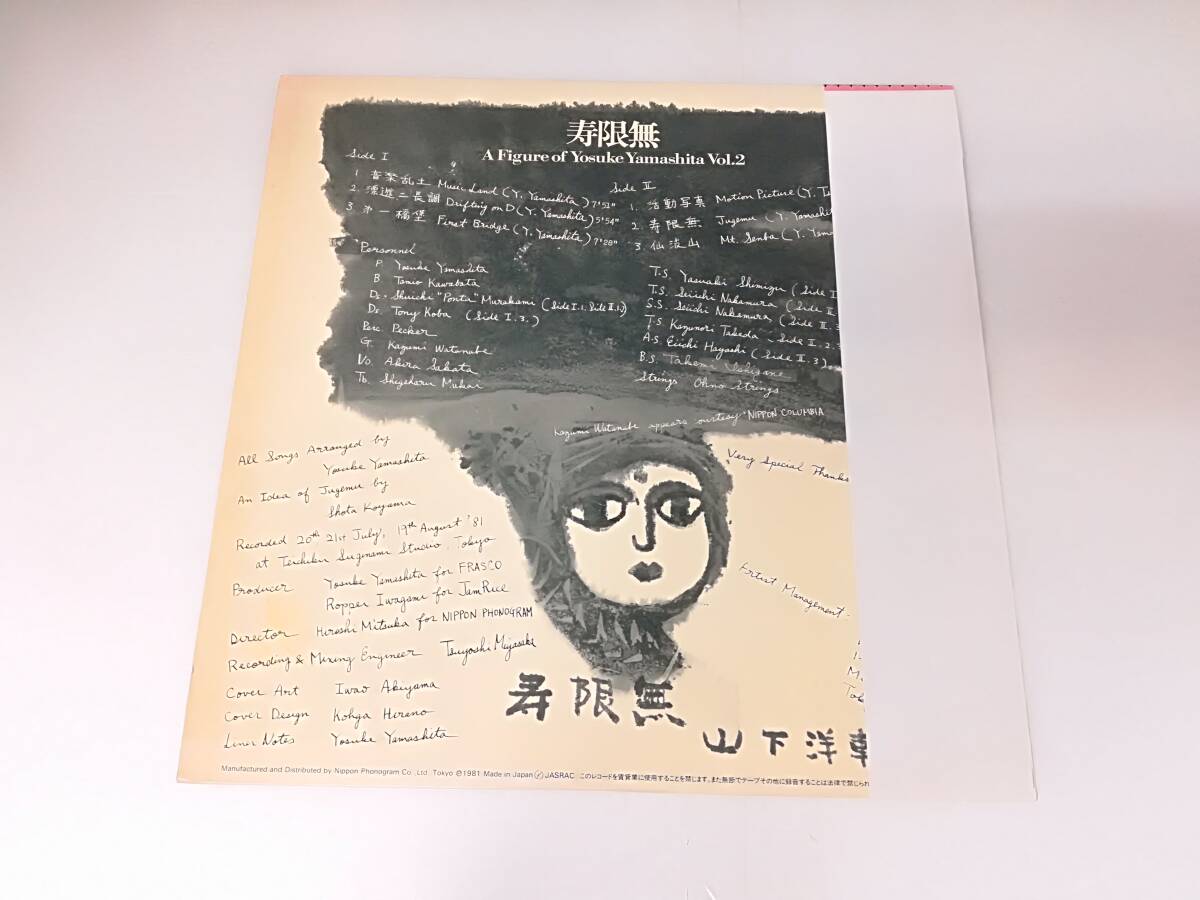 寿限無
A Figure of Yosuke Yamashita Vol.2
Side I
1 音楽乱土 Music Land (Y. Yamashita) 7'51"
2. 漂遊ニ長調 Drifting on D (Y. Yamashita) 5'54"
3 第一橋堡 First Bridge (Y. Yamashita) 7'28"
Side II
1. 活動写真 Motion Picture (Y.
2. 寿限無 Jugemu (Y. Yamashi
3. 仙波山 Mt. Senba (Y. Yam
Personnel
P. Yosuke Yamashita
B Tamio Kawabata
Ds. Shuichi "Ponta" Murakami (Side I.1. Side II.1.)
Ds. Tony Koba (Side I. 3.)
Perc. Pecker
G. Kazumi Watanabe
Vo. Akira Sakata
Tb. Shigeharu Mukai
T.S. Yasuaki Shimizu (Side I
T.S. Seiichi Nakamura (Side II
S.S. Seiichi Nakamura (Side II. 3
T.S. Kazunori Takeda Side I. 2. 3
A.S. Eiichi Hayashi (Side II. 3)
B.S. Takemi
Strings Ohno Strings
Kazumi Watanabe appears courtesy NIPPON COLUMBIA
Very Special Thanks
All Songs Arranged by
Yosuke Yamashita
An Idea of Jugemu by
Shota Koyama
Recorded 20th 21st July, 19th August '81
at Teichiku Suginami Studio, Tokyo
Producer Yosuke Yamashita for FRASCO
Ropper Iwagami for Jam Rice
Director Hiroshi Mitsuka for NIPPON PHONOGRAM
Recording & Mixing Engineer Tsuyoshi Miyasaka
Cover Art Iwao Akiyama
Cover Design Kohga Hirano
Liner Notes Yosuke Yamashita
Artist Management
寿限無
山下洋
Manufactured and Distributed by Nippon Phonogram Co., Ltd. Tokyo ℗1981 Made in Japan Ⓨ JASRAC このレコードを賃貸業に使用することを禁じます。また無断でテープその他に録音することは法律で禁じられ